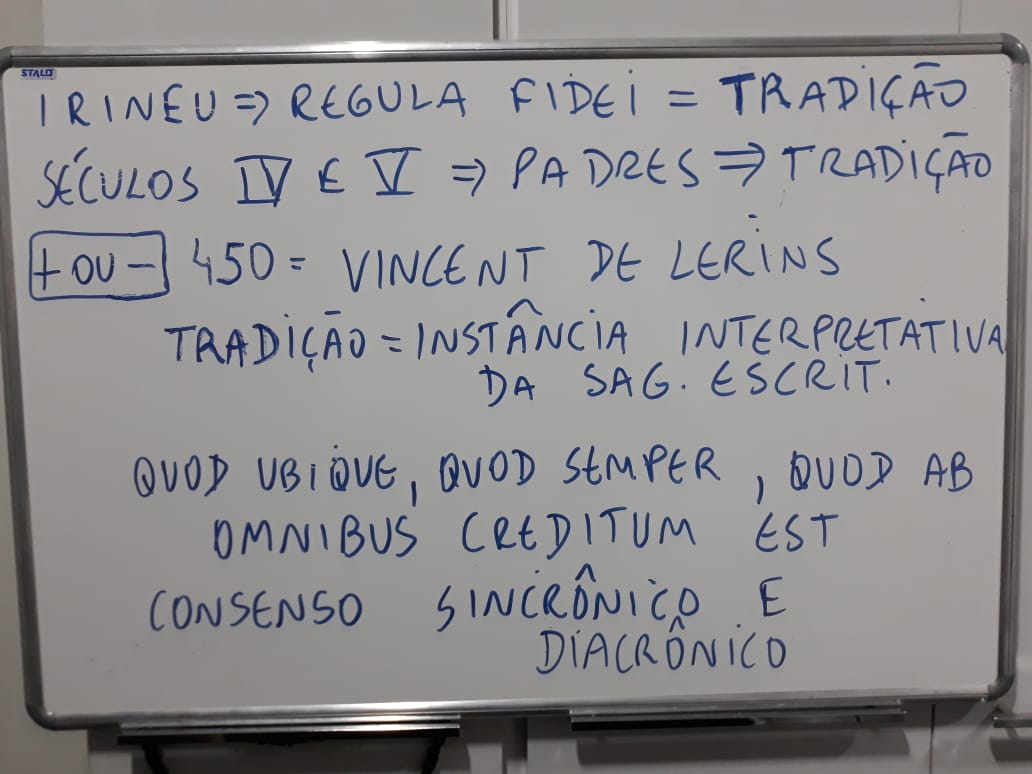 STALO
IRINEU => REGULA FIDEI = TRADIÇÃO
SÉCULOS IV E V => PADRES => TRADIÇÃO
+ OU - 450 = VINCENT DE LERINS
TRADIÇÃO = INSTÂNCIA INTERPRETATIVA
DA SAG. ESCRIT.
QUOD UBIQUE, QUOD SEMPER, QUOD AB
OMNIBUS CREDITUM EST
CONSENSO SINCRÔNICO E
DIACRÔNICO